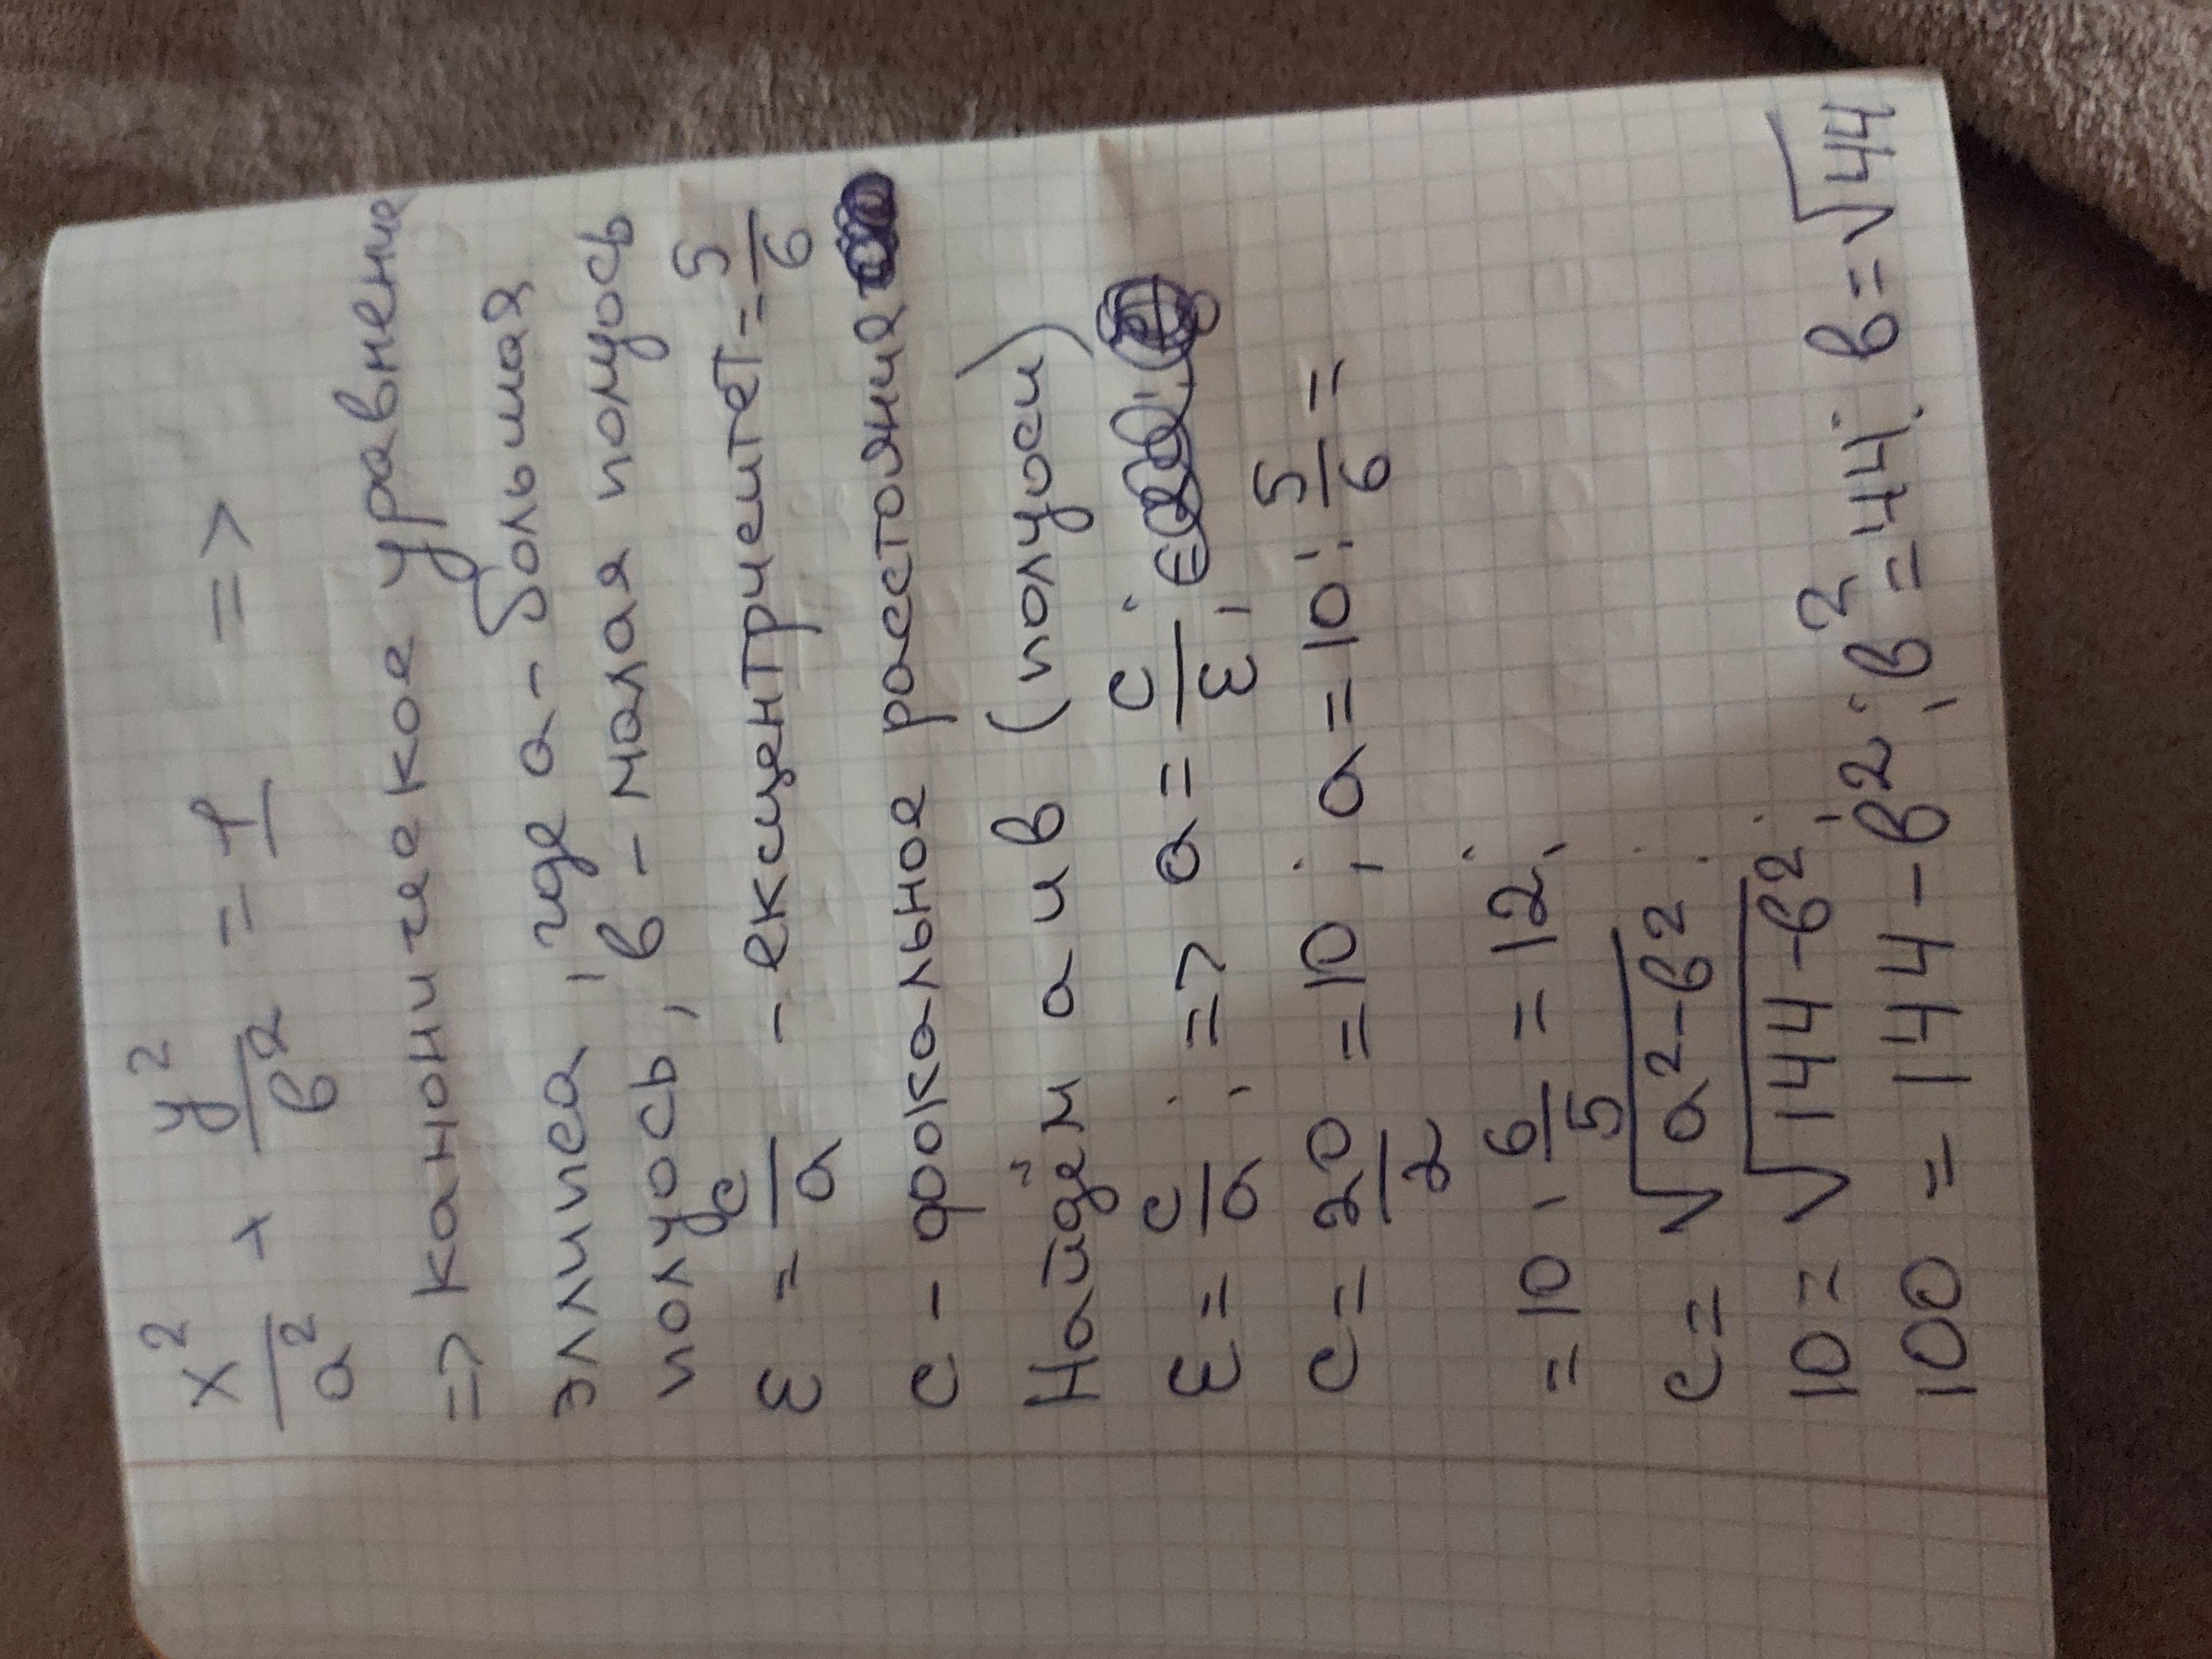 x²/a² + y²/в² = 1 =>
=> каноническое уравнение
эллипса, где а - большая
полуось, в - малая полуось
ε = c/a - ексцентриситет = 5/6
с - фокальное расстояния
Найдём а и в (полуоси)
ε = c/a; => a = c/ε;
c = 20/2 = 10; a = 10 : 5/6 =
= 10 · 6/5 = 12;
c = √(a² - в²);
10 = √(144 - в²);
100 = 144 - в²; в² = 44; в = √44